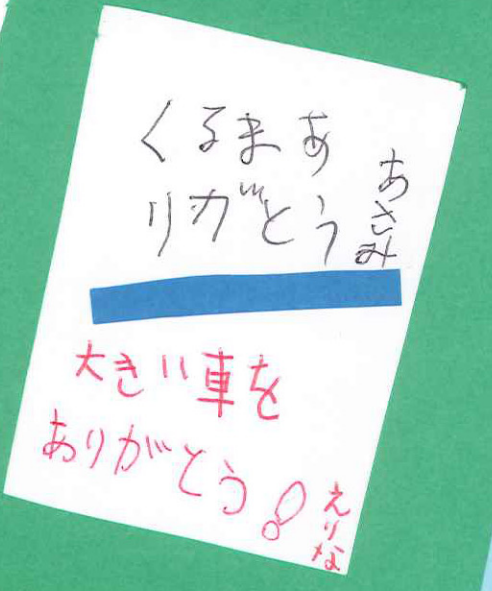 くるまあ
りがとう
あさみ
大きい車を
ありがとう!
えりな